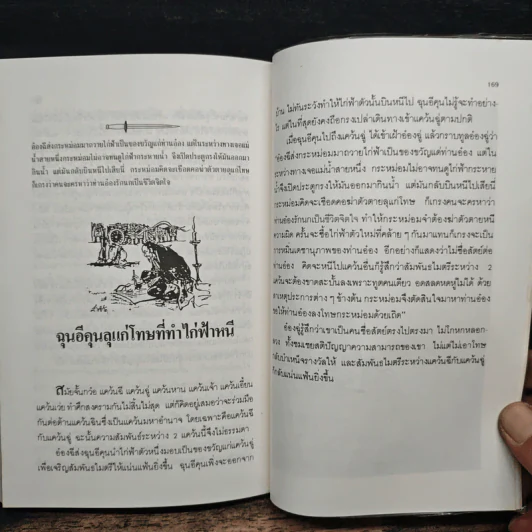 อ๋องฉีส่งกระหม่อมมาถวายไก่ฟ้าเป็นของขวัญแด่ท่านอ๋อง แต่ในระหว่างทางเจอแม่
น้ำสายหนึ่งกระหม่อมไม่อาจทนดูไก่ฟ้ากระหายน้ำ จึงเปิดประตูกรงให้มันออกมา
กินน้ำ แต่มันกลับบินหนีไปเสียนี่ กระหม่อมคิดจะเชือดคอฆ่าตัวตายลุแก่โทษ
ก็เกรงว่าคนจะครหาว่าท่านอ๋องรักนกเป็นชีวิตจิตใจ
ฉุนอีคุนลุแก่โทษที่ทำไก่ฟ้าหนี
สมัยจ้านกว๋อ แคว้นฉี แคว้นฉู่ แคว้นหาน แคว้นเจ้า แคว้นเอี้ยน
แคว้นเว่ย ทำศึกสงครามกันไม่สิ้นไม่สุด แต่ก็คิดอยู่เสมอว่าจะร่วมมือ
กันต่อต้านแคว้นฉินซึ่งเป็นแคว้นมหาอำนาจ โดยเฉพาะคือแคว้นฉี
กับแคว้นฉู่ ฉะนั้นความสัมพันธ์ระหว่าง 2 แคว้นนี้จึงไม่ธรรมดา
อ๋องฉีส่งฉุนอีคุนนำไก่ฟ้าตัวหนึ่งมอบเป็นของขวัญแก่แคว้นฉู่
เพื่อเจริญสัมพันธไมตรีให้แน่นแฟ้นยิ่งขึ้น ฉุนอีคุนเพิ่งจะออกจาก
169
บ้าน ไม่ทันระวังทำให้ไก่ฟ้าตัวนั้นบินหนีไป ฉุนอีคุนไม่รู้จะทำอย่าง
ไร แต่ในที่สุดยังคงถือกรงเปล่าเดินทางเข้าแคว้นฉู่ตามปกติ
เมื่อฉุนอีคุนไปถึงแคว้นฉู่ ได้เข้าเฝ้าอ๋องฉู่ แล้วกราบทูลอ๋องฉู่ว่า
"อ๋องฉีส่งกระหม่อมมาถวายไก่ฟ้าเป็นของขวัญแด่ท่านอ๋อง แต่ใน
ระหว่างทางเจอแม่น้ำสายหนึ่ง กระหม่อมไม่อาจทนดูไก่ฟ้ากระหาย
น้ำจึงเปิดประตูกรงให้มันออกมากินน้ำ แต่มันกลับบินหนีไปเสียนี่
กระหม่อมคิดจะเชือดคอฆ่าตัวตายลุแก่โทษ ก็เกรงคนจะครหาว่า
ท่านอ๋องรักนกเป็นชีวิตจิตใจ ทำให้กระหม่อมจำต้องฆ่าตัวตายหนี
ความผิด ครั้นจะซื้อไก่ฟ้าตัวใหม่ที่คล้าย ๆ กันมาแทนก็เกรงจะเป็น
การหมิ่นเดชานุภาพของท่านอ๋อง อีกอย่างก็แสดงว่าไม่ซื่อสัตย์ต่อ
ท่านอ๋อง คิดจะหนีไปแคว้นอื่นก็รู้สึกว่าสัมพันธไมตรีระหว่าง 2
แคว้นจะต้องขาดสะบั้นลงเพราะทูตคนเดียว อดสลดหดหู่ไม่ได้ ด้วย
สาเหตุประการต่าง ๆ ข้างต้น กระหม่อมจึงตัดสินใจมาหาท่านอ๋อง
ขอให้ท่านอ๋องลงโทษกระหม่อมด้วยเถิด"
อ๋องฉู่รู้สึกว่าเขาเป็นคนซื่อสัตย์ตรงไปตรงมา ไม่โกหกหลอก
ลวง ทั้งชมเชยสติปัญญาความสามารถของเขา ไม่แต่ไม่เอาโทษ
กลับบำเหน็จรางวัลให้ และสัมพันธไมตรีระหว่างแคว้นฉีกับแคว้นฉู่
ก็กลับแน่นแฟ้นยิ่งขึ้น